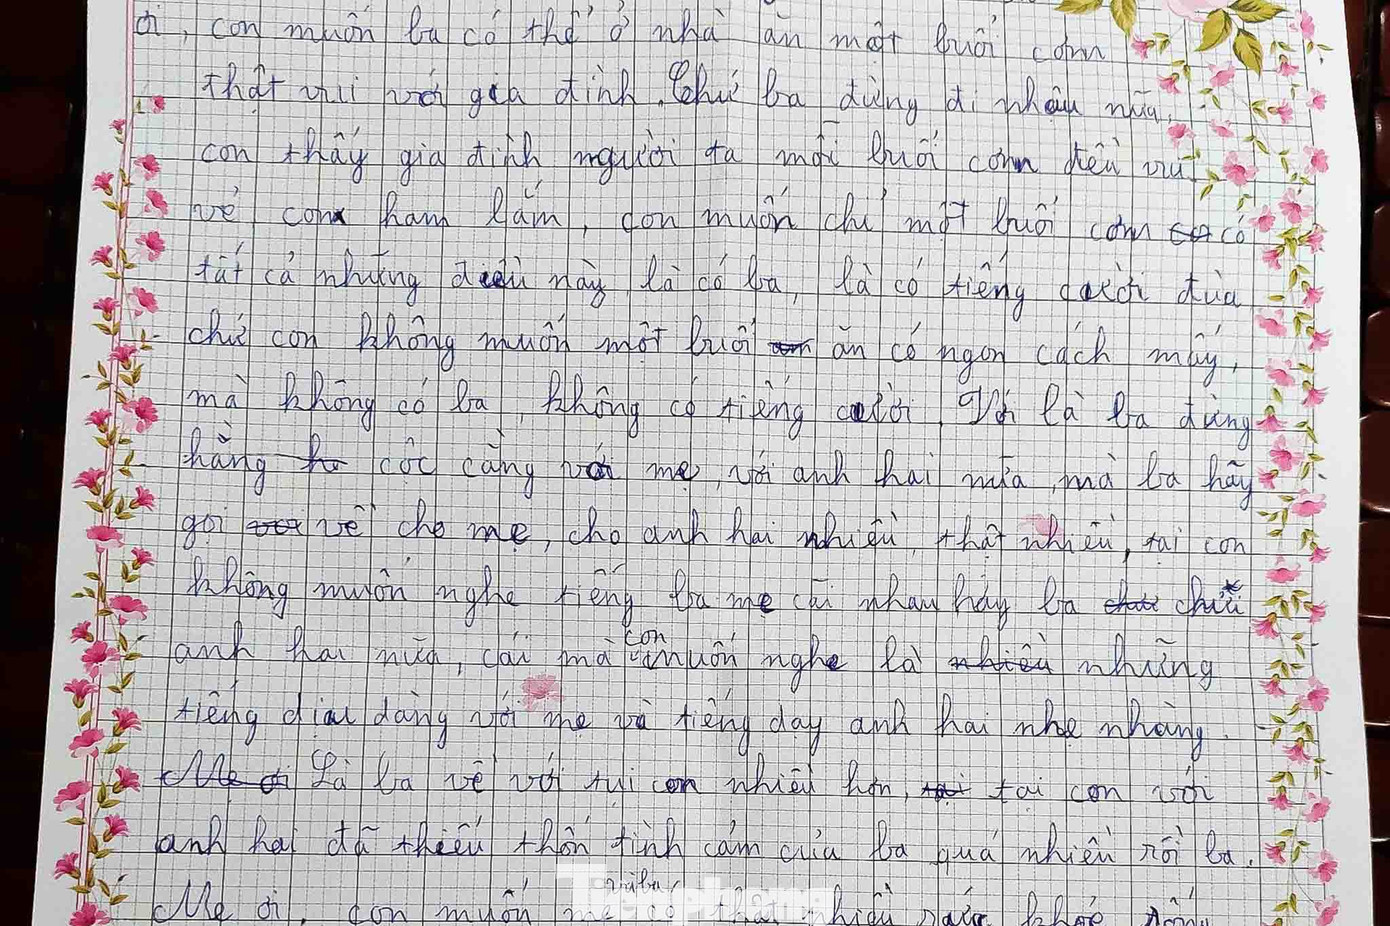 ơi, con muốn ba có thể ở nhà ăn một buổi cơm
thật vui với gia đình. Chứ ba đừng đi nhậu nữa,
con thấy gia đình người ta mỗi buổi cơm đều vui
vẻ con ham lắm, con muốn chỉ một buổi cơm có
tất cả những điều này là có ba, là có tiếng cười đùa
chứ con không muốn một buổi ăn có ngon cách mấy,
mà không có ba, không có tiếng cười. Với là ba đừng
hằng cộc cằng với mẹ, với anh hai nữa, mà ba hãy
gọi về cho mẹ, cho anh hai nhiều, thật nhiều, tại con
không muốn nghe tiếng ba mẹ cãi nhau hay ba chửi
anh hai nữa, cái mà con muốn nghe là những
tiếng dịu dàng với mẹ và tiếng dạy anh hai nhẹ nhàng.
Là ba về với tụi con nhiều hơn, tại con với
anh hai đã thiếu thốn tình cảm của ba quá nhiều rồi ba.
Mẹ ơi, con muốn mẹ và ba có
Tienphong